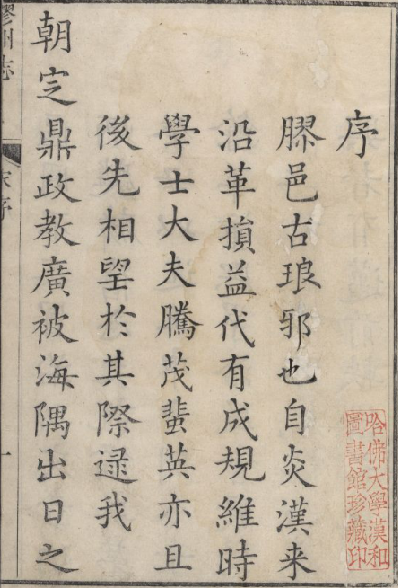 序
膠邑古琅邪也自炎漢来
沿革損益代有成規維時
學士大夫騰茂蜚英亦且
後先相望於其際逮我
朝定鼎政教廣被海隅出日之
膠州志
序
一
哈佛大學漢和
圖書館珍藏印